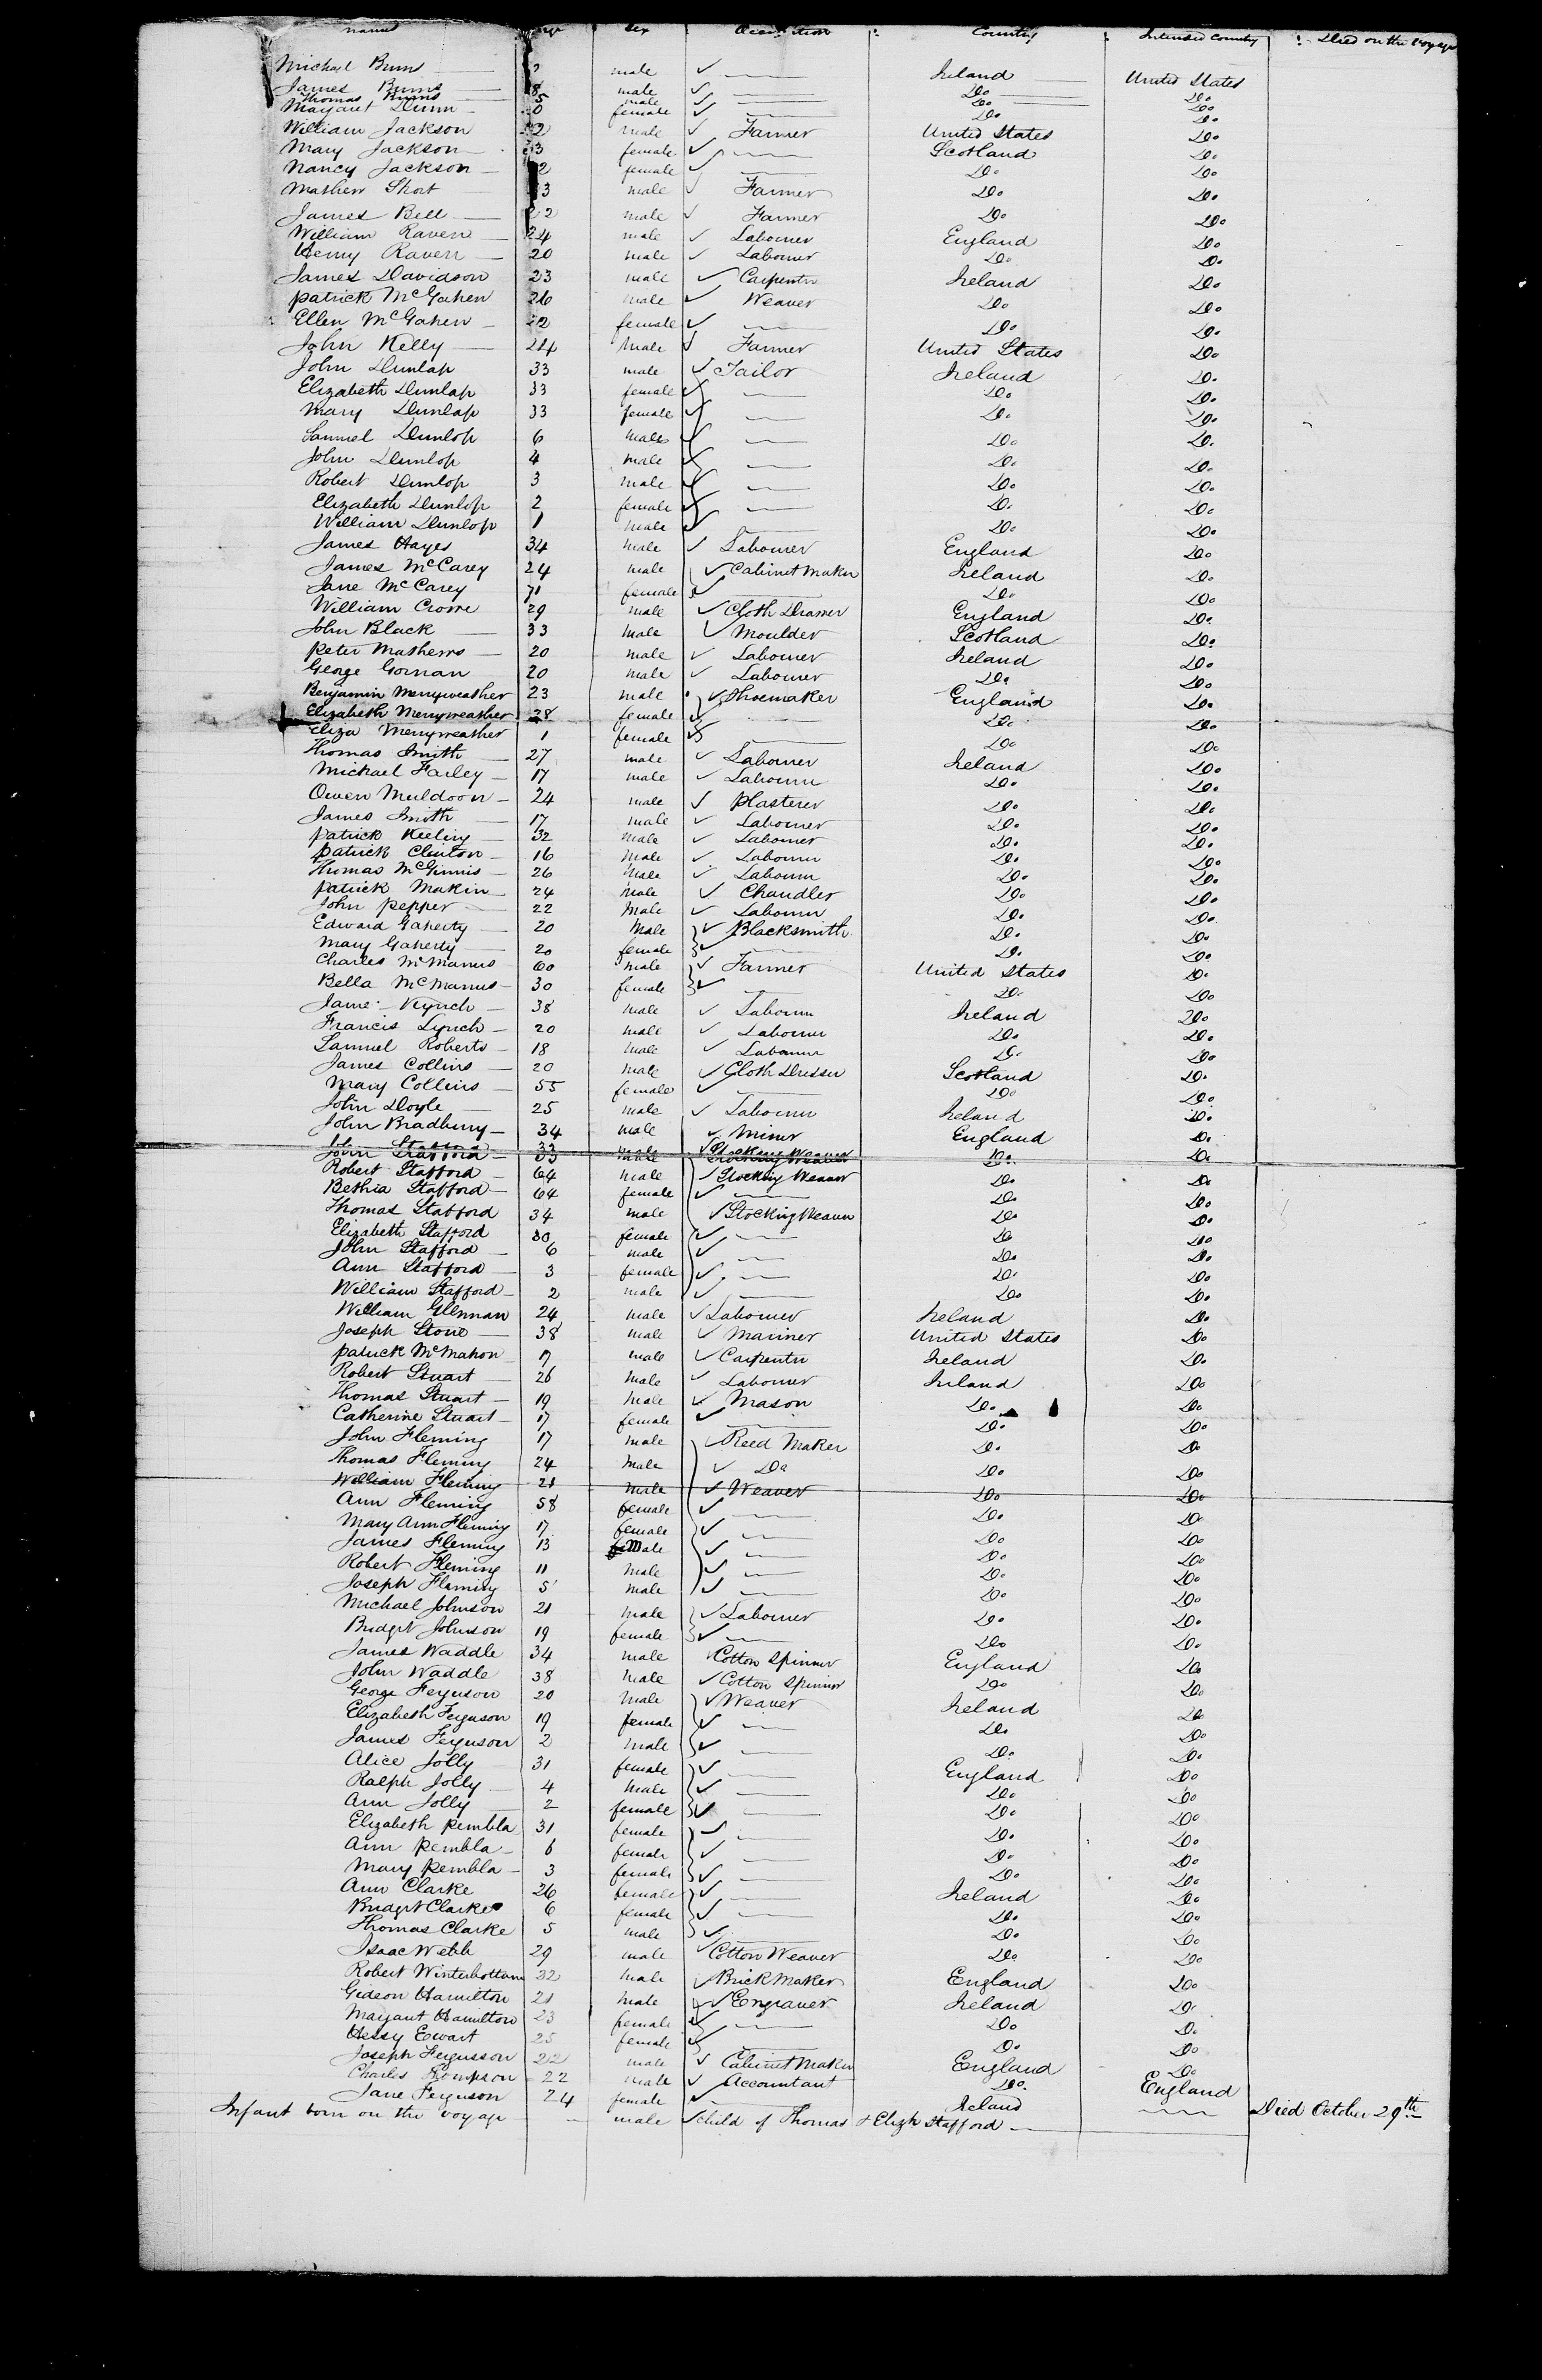 names Age Sex Occupation Country Intended Country Died on the Voyage
Michael Burns male Ireland United States
James Burns 8 male Do. Do.
Thomas Burns 5 male Do. Do.
Margaret Dunn 0 female Do. Do.
William Jackson 2 male Farmer United States Do.
Mary Jackson 3 female Scotland Do.
Nancy Jackson 2 female Do. Do.
Mathew Short 3 male Farmer Do. Do.
James Bell 22 male Farmer Do. Do.
William Raven 24 male Labourer England Do.
Henry Raven 20 male Labourer Do. Do.
James Davidson 23 male Carpenter Ireland Do.
Patrick McGahen 26 male Weaver Do. Do.
Ellen McGahen 22 female Do. Do.
John Kelly 24 male Farmer United States Do.
John Dunlap 33 male Tailor Ireland Do.
Elizabeth Dunlap 33 female Do. Do.
Mary Dunlap 33 female Do. Do.
Samuel Dunlop 6 male Do. Do.
John Dunlop 4 male Do. Do.
Robert Dunlop 3 male Do. Do.
Elizabeth Dunlop 2 female Do. Do.
William Dunlop 1 male Do. Do.
James Hayes 34 male Labourer England Do.
James McCarey 24 male Cabinet Maker Ireland Do.
Jane McCarey 71 female Do. Do.
William Crowe 29 male Cloth Drawer England Do.
John Black 33 male Moulder Scotland Do.
Peter Mathews 20 male Labourer Ireland Do.
George Gornan 20 male Labourer Do. Do.
Benjamin Merryweather 23 male Shoemaker England Do.
Elizabeth Merryweather 28 female Do. Do.
Eliza Merryweather 1 female Do. Do.
Thomas Smith 27 male Labourer Ireland Do.
Michael Farley 17 male Labourer Do. Do.
Owen Muldoon 24 male Plasterer Do. Do.
James Smith 17 male Labourer Do. Do.
Patrick Keeling 32 male Labourer Do. Do.
Patrick Clinton 16 male Labourer Do. Do.
Thomas McGinnis 26 male Labourer Do. Do.
Patrick Makin 24 male Chandler Do. Do.
John Pepper 22 male Labourer Do. Do.
Edward Gaherty 20 male Blacksmith Do. Do.
Mary Gaherty 20 female Do. Do.
Charles McManus 60 male Farmer United States Do.
Bella McManus 30 female Do. Do.
Jame. Lynch 38 male Labourer Ireland Do.
Francis Lynch 20 male Labourer Do. Do.
Samuel Roberts 18 male Labourer Do. Do.
James Collins 20 male Cloth Dresser Scotland Do.
Mary Collins 55 female Do. Do.
John Doyle 25 male Labourer Ireland Do.
John Bradbury 34 male Miner England Do.
John Stafford 33 male Stocking Weaver Do. Do.
Robert Stafford 64 male Stocking Weaver Do. Do.
Bethia Stafford 64 female Do. Do.
Thomas Stafford 34 male Stocking Weaver Do. Do.
Elizabeth Stafford 30 female Do. Do.
John Stafford 6 male Do. Do.
Ann Stafford 3 female Do. Do.
William Stafford 2 male Do. Do.
William Glennan 24 male Labourer Ireland Do.
Joseph Stone 38 male Mariner United States Do.
Patrick McMahon 17 male Carpenter Ireland Do.
Robert Stuart 26 male Labourer Ireland Do.
Thomas Stuart 19 male Mason Do. Do.
Catherine Stuart 17 female Do. Do.
John Fleming 17 male Reed Maker Do. Do.
Thomas Fleming 24 male Do. Do. Do.
William Fleming 21 male Weaver Do. Do.
Ann Fleming 58 female Do. Do.
Mary Ann Fleming 17 female Do. Do.
James Fleming 13 male Do. Do.
Robert Fleming 11 male Do. Do.
Joseph Fleming 5 male Do. Do.
Michael Johnson 21 male Labourer Do. Do.
Bridget Johnson 19 female Do. Do.
James Waddle 34 male Cotton Spinner England Do.
John Waddle 38 male Cotton Spinner Do. Do.
George Ferguson 20 male Weaver Ireland Do.
Elizabeth Ferguson 19 female Do. Do.
James Ferguson 2 male Do. Do.
Alice Jolly 31 female England Do.
Ralph Jolly 4 male Do. Do.
Ann Jolly 2 female Do. Do.
Elizabeth Pembla 31 female Do. Do.
Ann Pembla 6 female Do. Do.
Mary Pembla 3 female Do. Do.
Ann Clarke 26 female Ireland Do.
Bridget Clarke 6 female Do. Do.
Thomas Clarke 5 male Do. Do.
Isaac Webb 29 male Cotton Weaver Do. Do.
Robert Winterbottum 32 male Brick Maker England Do.
Gedeon Hamilton 21 male Engraver Ireland Do.
Margaret Hamilton 23 female Do. Do.
Hessy Ewart 25 female Do. Do.
Joseph Fergusson 22 male Cabinet Maker England Do.
Charles Thompson 22 male Accountant Do. England
Jane Ferguson 24 female Ireland
Infant born on the voyage male child of Thomas & Elizh Stafford Died October 29th